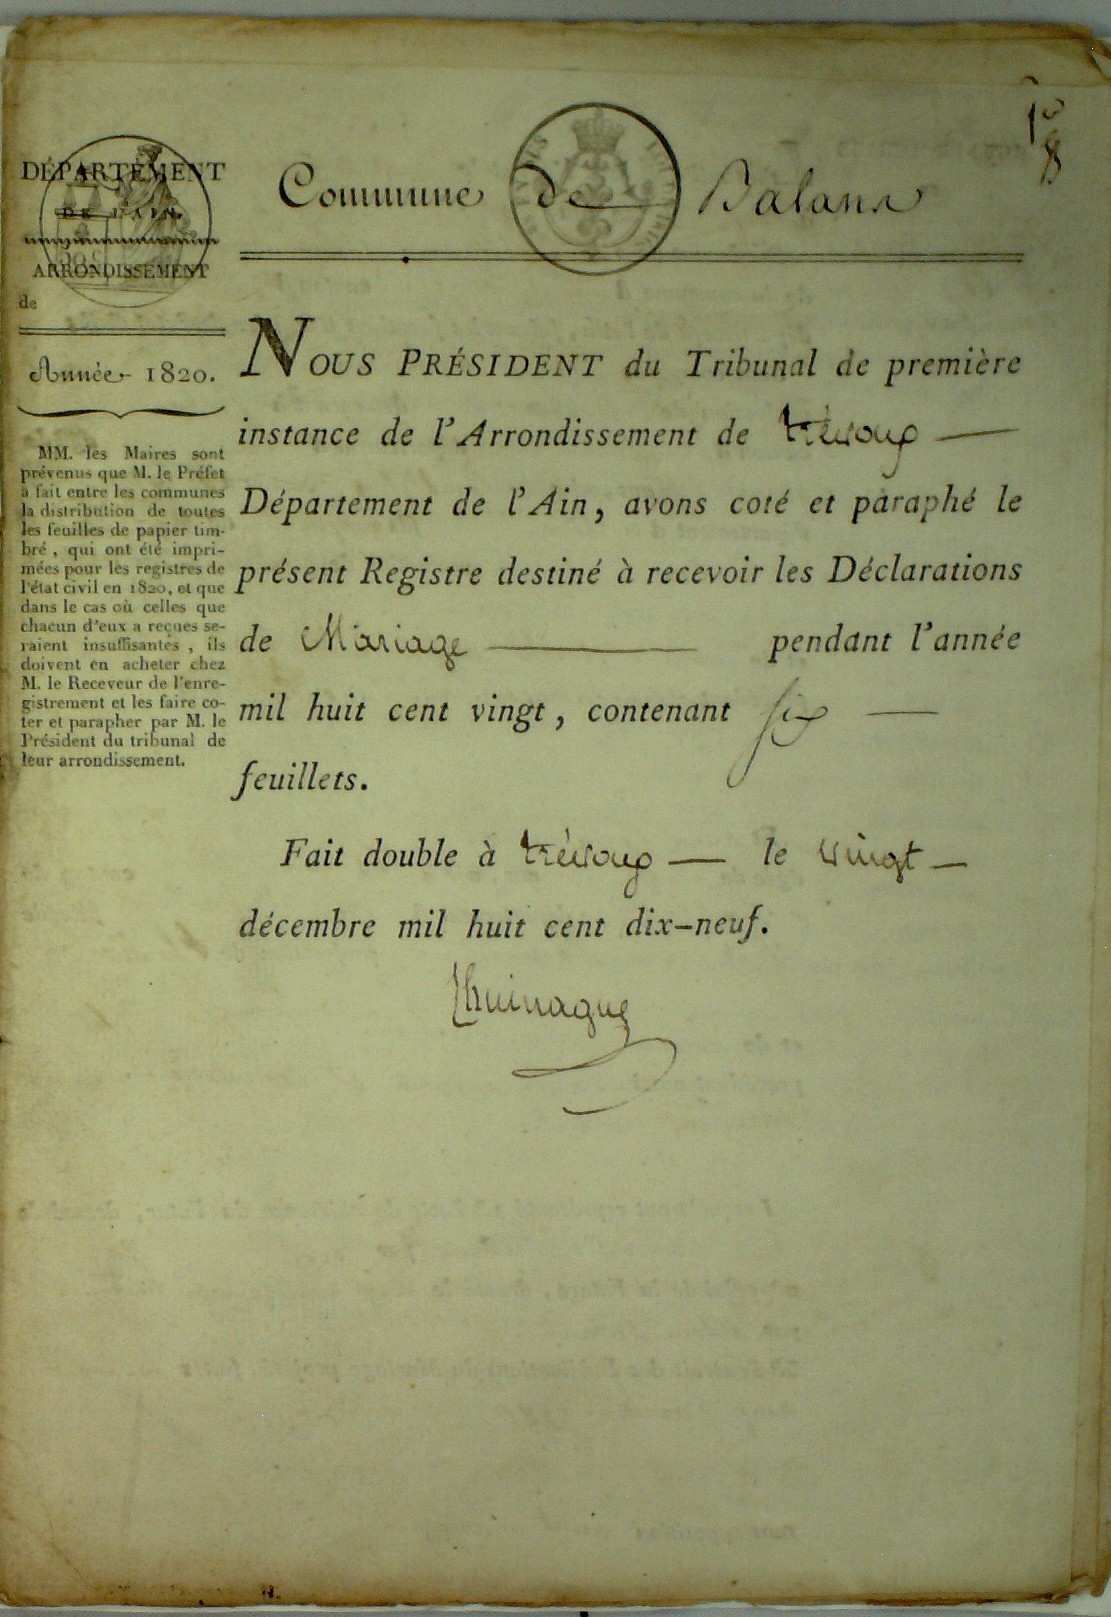 1er
DÉPARTEMENT
DE L'AIN.
ARRONDISSEMENT
de
Commune de Balans
Année 1820.
MM. les Maires sont
prévenus que M. le Préfet
a fait entre les communes
la distribution de toutes
les feuilles de papier tim-
bré, qui ont été impri-
mées pour les registres de
l'état civil en 1820, et que
dans le cas où celles que
chacun d'eux a reçues se-
raient insuffisantes, ils
doivent en acheter chez
M. le Receveur de l'enre-
gistrement et les faire co-
ter et parapher par M. le
Président du tribunal de
leur arrondissement.
NOUS PRÉSIDENT du Tribunal de première
instance de l'Arrondissement de trévoux
Département de l'Ain, avons coté et paraphé le
présent Registre destiné à recevoir les Déclarations
de Mariage pendant l'année
mil huit cent vingt, contenant six
feuillets.
Fait double à trévoux le vingt
décembre mil huit cent dix-neuf.